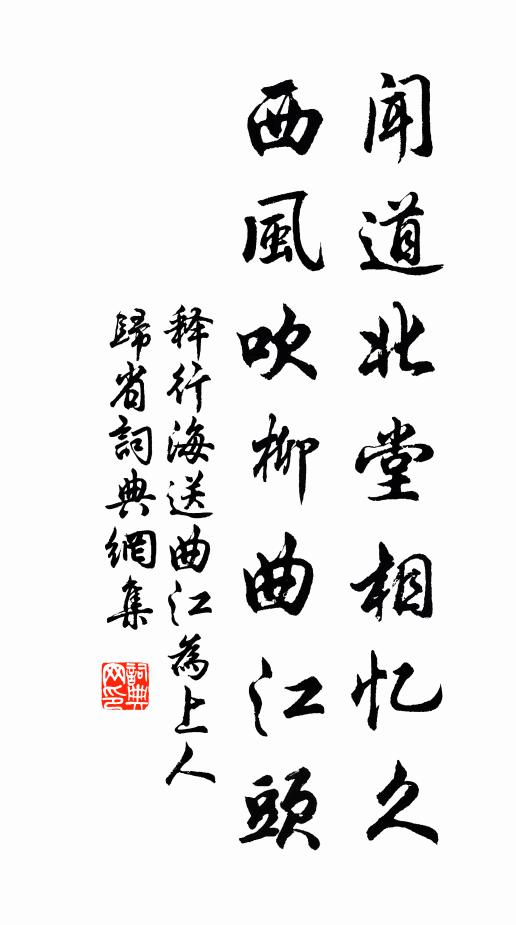 闻道北堂相忆久
西風吹柳曲江頭
释行海送曲江為上人
歸省詞典網集
詞典
网印